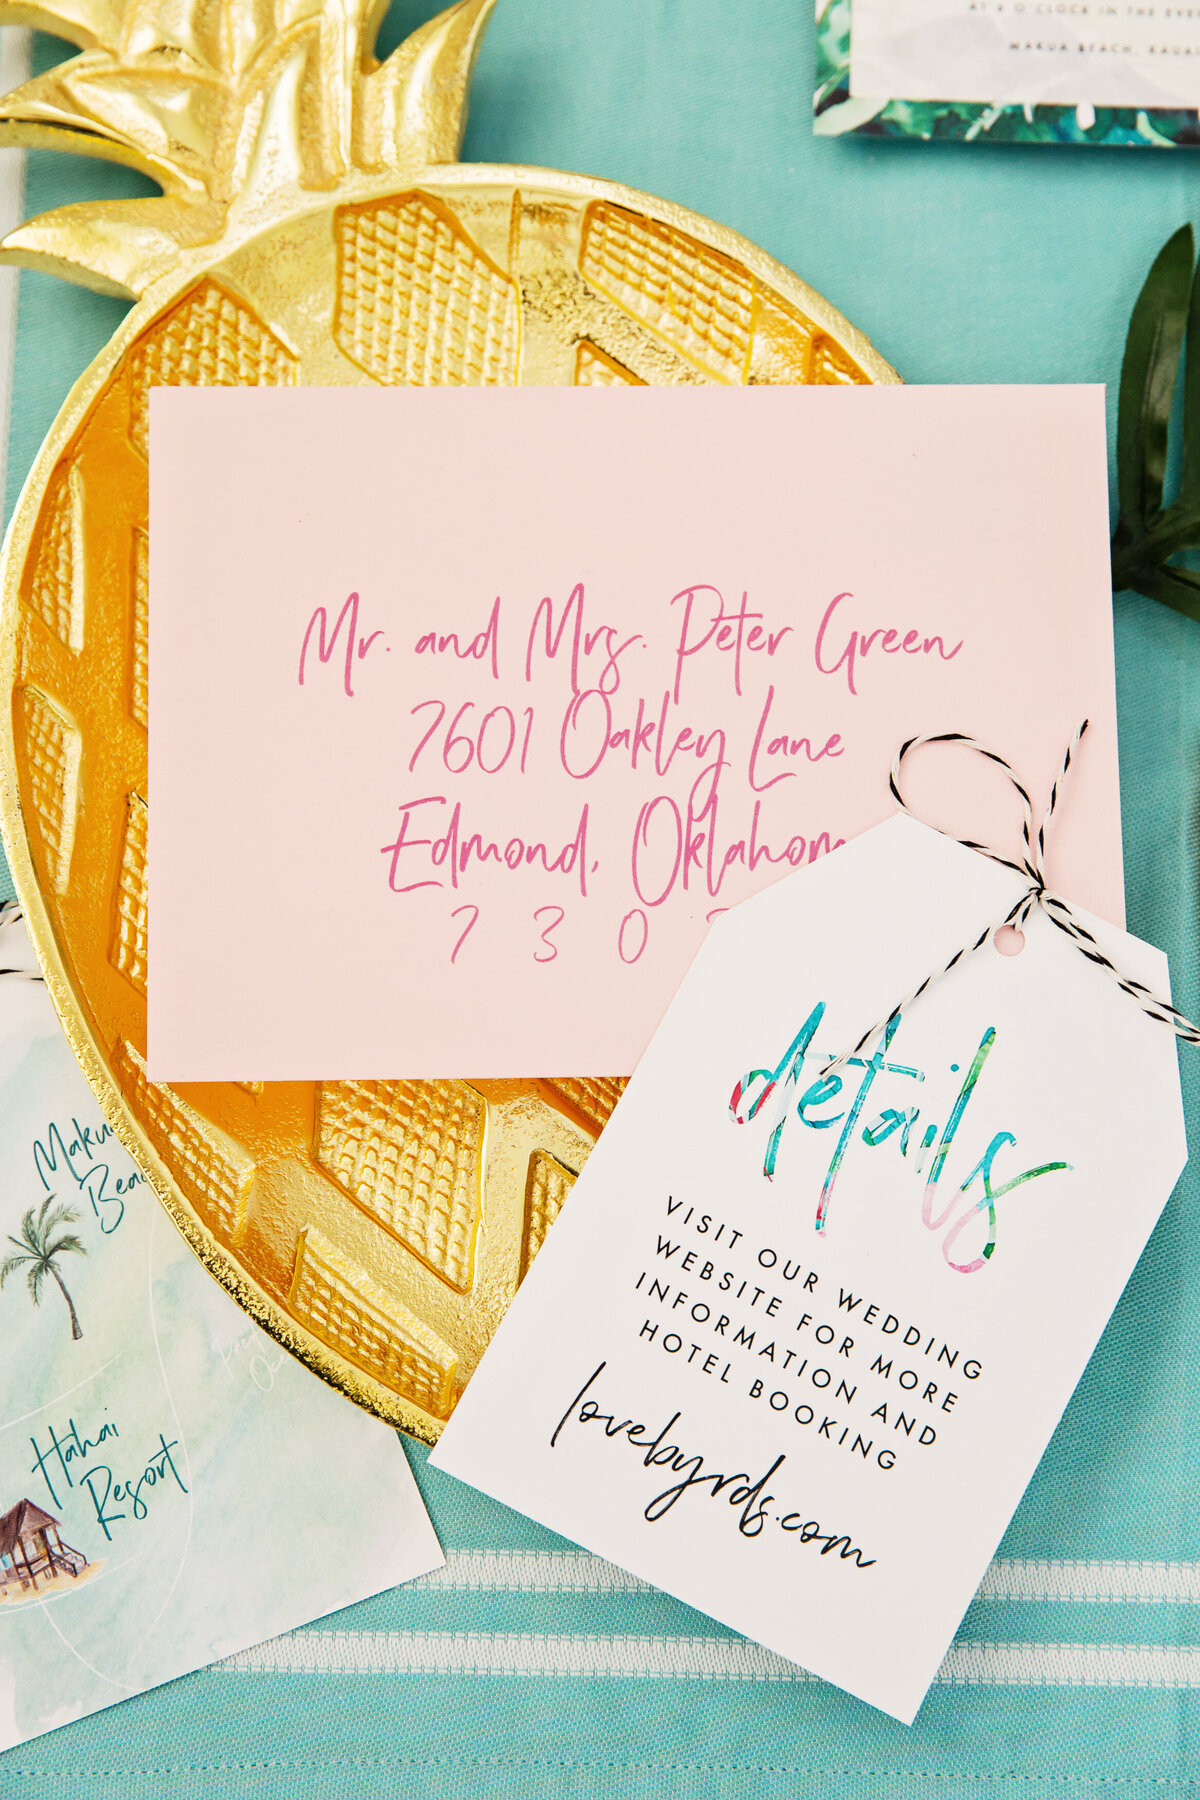 AT 6 O'CLOCK IN THE
MAKUA BEACH,
Mr. and Mrs. Peter Green
7601 Oakley Lane
Edmond, Oklahom
7 3 0
details
VISIT OUR WEDDING
WEBSITE FOR MORE
INFORMATION AND
HOTEL BOOKING
lovebyrds.com
Maku
Bea
Hahai
Resort